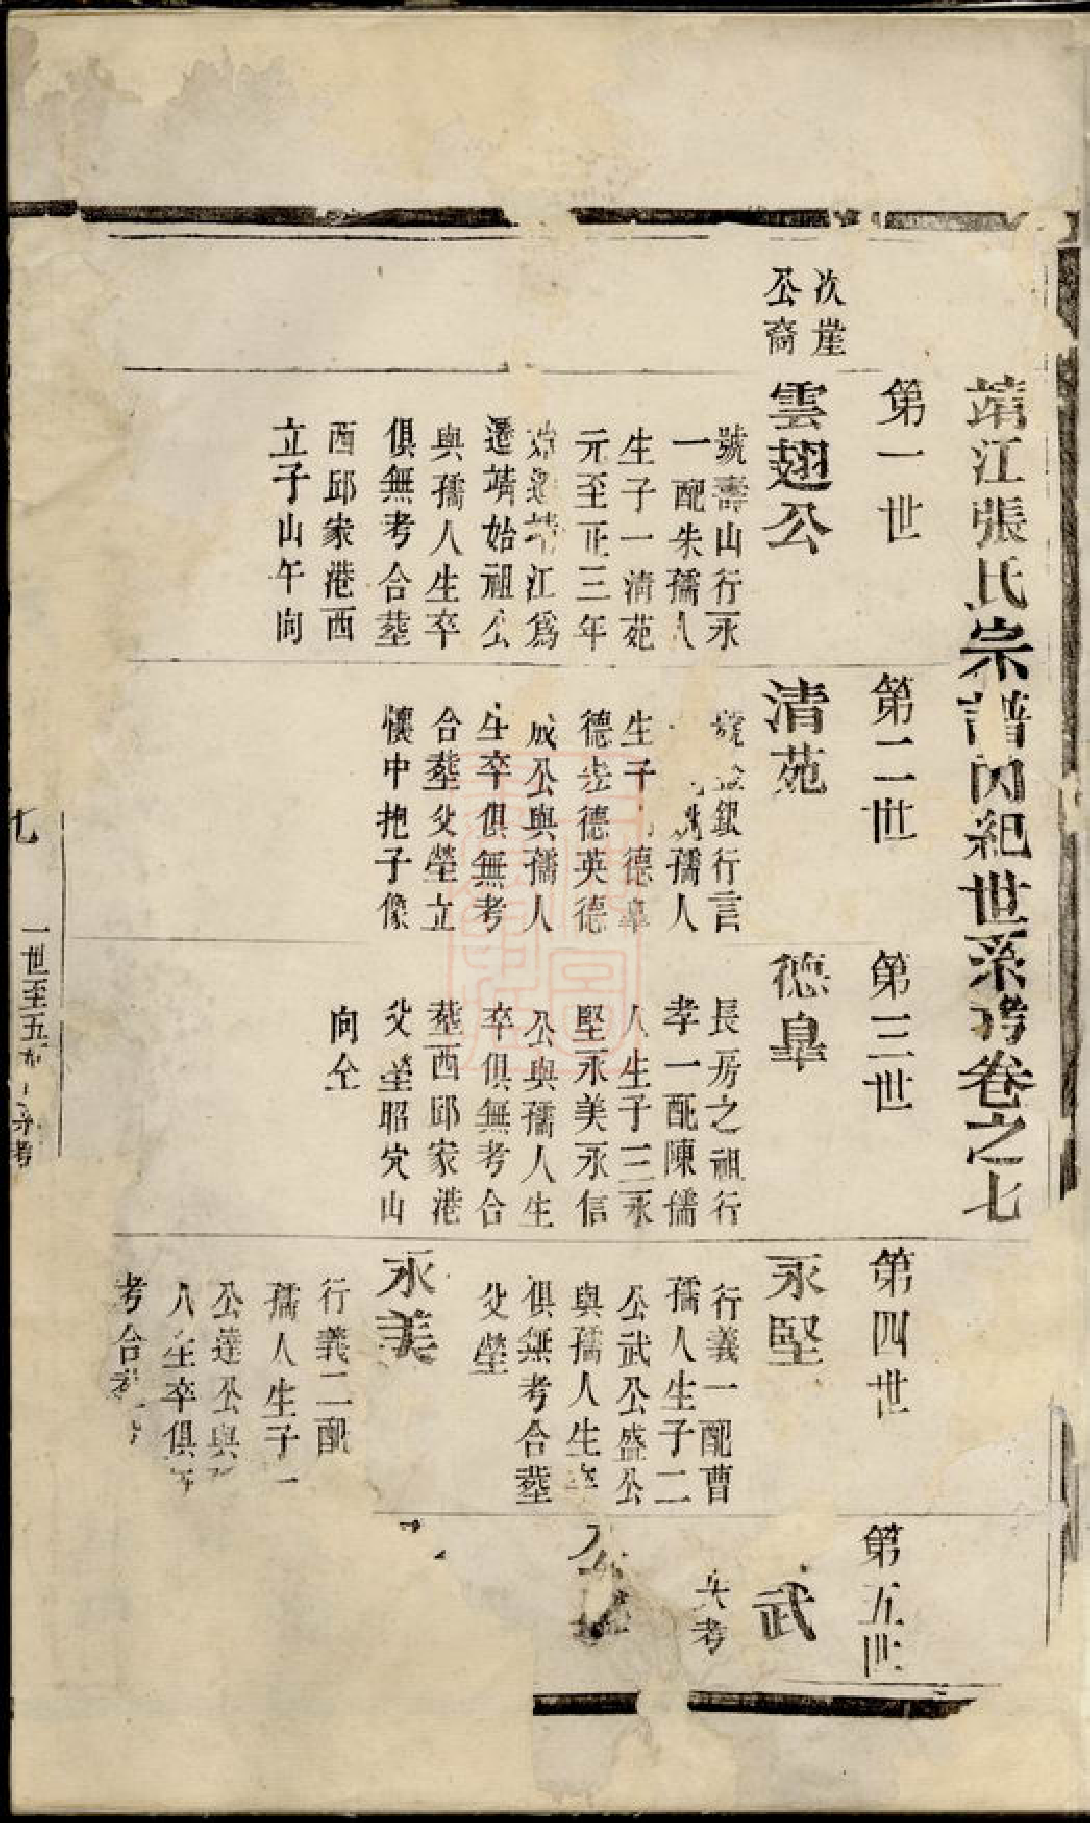 靖江張氏宗譜內紀世系考卷之七
第一世
次崖
公裔
雲翅公
號壽山行永
一配朱孺人
生子一清苑
元至正三年
始遷靖江爲
遷靖始祖公
與孺人生卒
俱無考合塟
西邱家港西
立子山午向
第二世
清苑
號 銀行言
孺人
生子 德臯
德 德英德
成公與孺人
生卒俱無考
合塟父塋立
懷中抱子像
第三世
德臯
長房之祖行
孝一配陳孺
人生子三永
堅永美永信
公與孺人生
卒俱無考合
塟西邱家港
父塋昭穴山
向仝
第四世
永堅
行義一配曹
孺人生子二
公武公盛公
與孺人生卒
俱無考合塟
父塋
永美
行義二配
孺人生子一
公達公與
人生卒俱
考合塟
第五世
公武
失考
公盛
七
一世至五世 考